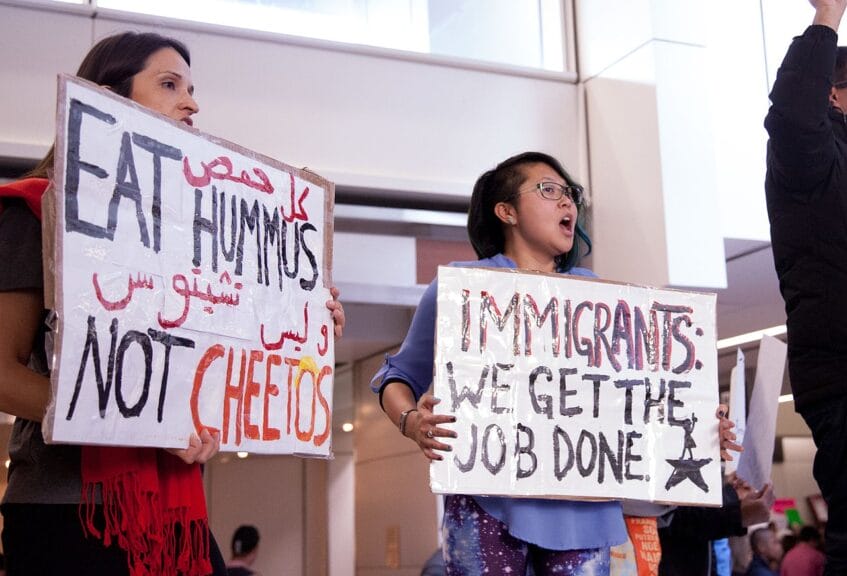 كل حمص
EAT HUMMUS
و ليس
تشيتوس
NOT CHEETOS
IMMIGRANTS:
WE GET THE
JOB DONE.